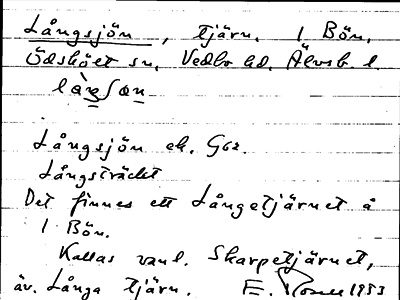 Långsjön, tjärn. 1 Bön,
Ödskölt sn, Vedbo hd. Älvsb. l.
Långsjön ek. G62.
Långsträckt
Det finnes ett Långetjärnet å
1 Bön.
Kallas vanl. Skarpetjärnet,
äv. Långa tjärn. E. 1933